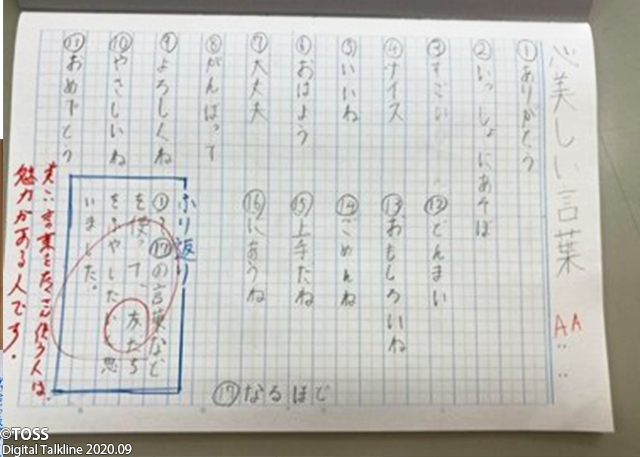 心美しい言葉
AA
①ありがとう
②いっしょにあそぼ
③すごい
④ナイス
⑤いいね
⑥おはよう
⑦大丈夫
⑧がんばって
⑨よろしくね
⑩やさしいね
⑪おめでとう
⑫どんまい
⑬おもしろいね
⑭ごめんね
⑮上手だね
⑯にあうね
⑰なるほど
ふり返り
⑰の言葉など
を使って、友だち
をふやしたいと思
いました。
言葉をたくさん使う人は、
魅力がある人です。
©TOSS
Digital Talkline 2020.09